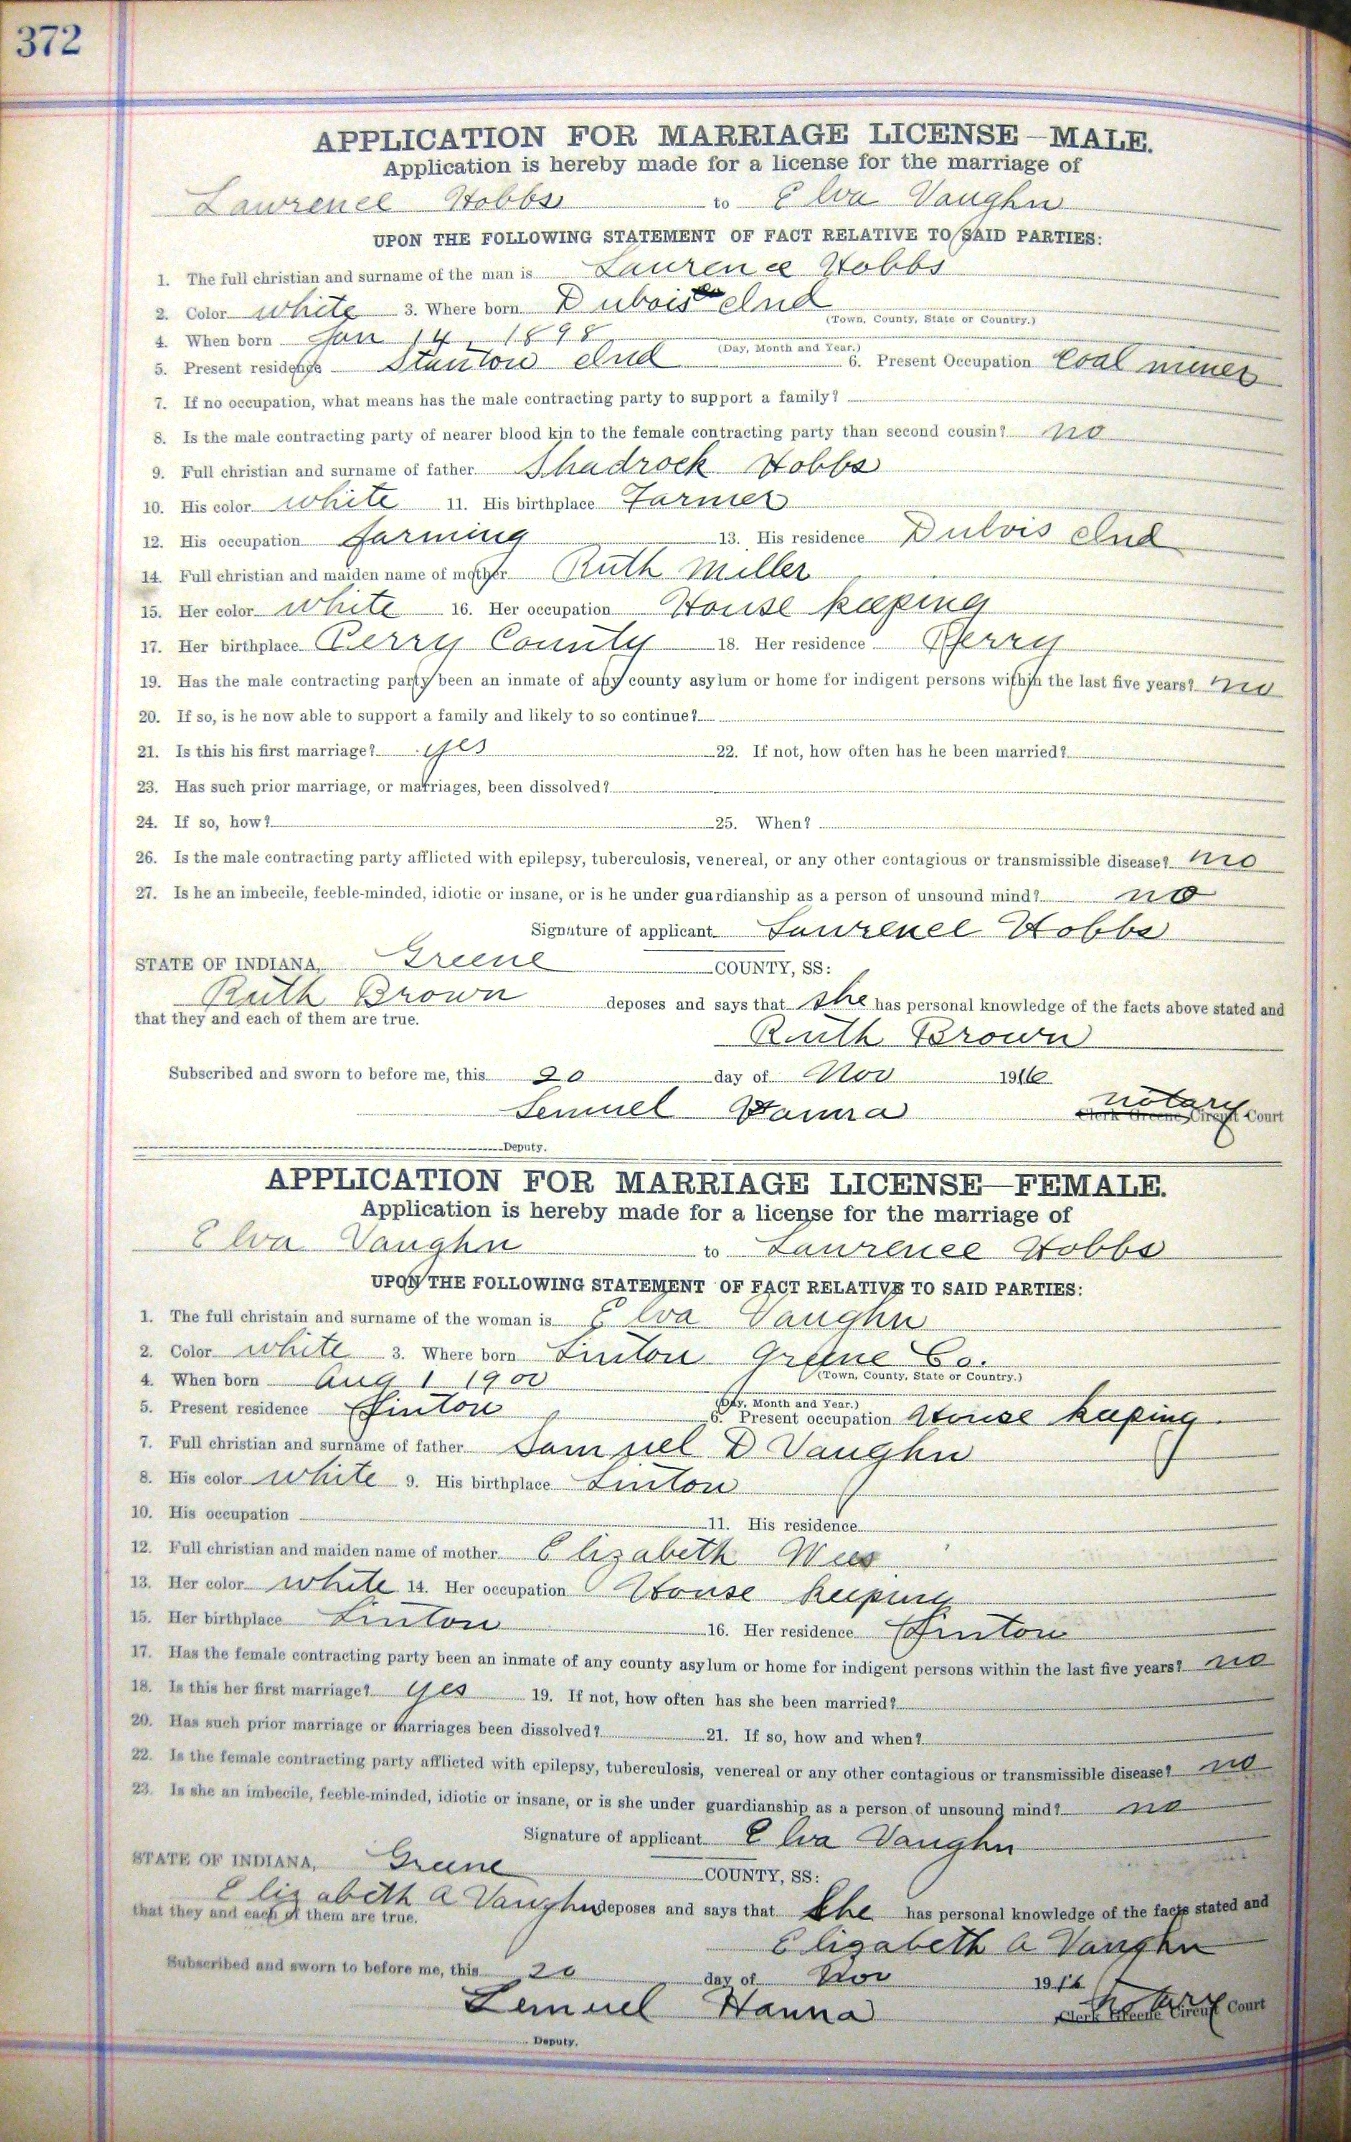 372
APPLICATION FOR MARRIAGE LICENSE—MALE.
Application is hereby made for a license for the marriage of
Lawrence Hobbs to Elva Vaughn
UPON THE FOLLOWING STATEMENT OF FACT RELATIVE TO SAID PARTIES:
1. The full christian and surname of the man is Laurence Hobbs
2. Color white 3. Where born Dubois Ind
(Town, County, State or Country.)
4. When born Jan 14, 1898
(Day, Month and Year.)
5. Present residence Stanton Ind 6. Present Occupation Coal miner
7. If no occupation, what means has the male contracting party to support a family?
8. Is the male contracting party of nearer blood kin to the female contracting party than second cousin? no
9. Full christian and surname of father Shadrock Hobbs
10. His color white 11. His birthplace Farmer
12. His occupation farming 13. His residence Dubois Ind
14. Full christian and maiden name of mother Ruth Miller
15. Her color white 16. Her occupation House keeping
17. Her birthplace Perry County 18. Her residence Perry
19. Has the male contracting party been an inmate of any county asylum or home for indigent persons within the last five years? no
20. If so, is he now able to support a family and likely to so continue?
21. Is this his first marriage? yes 22. If not, how often has he been married?
23. Has such prior marriage, or marriages, been dissolved?
24. If so, how? 25. When?
26. Is the male contracting party afflicted with epilepsy, tuberculosis, venereal, or any other contagious or transmissible disease? no
27. Is he an imbecile, feeble-minded, idiotic or insane, or is he under guardianship as a person of unsound mind? no
Signature of applicant Lawrence Hobbs
STATE OF INDIANA, Greene COUNTY, SS:
Ruth Brown deposes and says that she has personal knowledge of the facts above stated and
that they and each of them are true.
Ruth Brown
Subscribed and sworn to before me, this 20 day of Nov 1916
Lemuel Hanna notary Clerk Greene Circuit Court
Deputy.
APPLICATION FOR MARRIAGE LICENSE—FEMALE.
Application is hereby made for a license for the marriage of
Elva Vaughn to Lawrence Hobbs
UPON THE FOLLOWING STATEMENT OF FACT RELATIVE TO SAID PARTIES:
1. The full christain and surname of the woman is Elva Vaughn
2. Color white 3. Where born Linton Greene Co.
(Town, County, State or Country.)
4. When born Aug 1 1900
(Day, Month and Year.)
5. Present residence Linton 6. Present occupation House keeping
7. Full christian and surname of father Samuel D Vaughn
8. His color white 9. His birthplace Linton
10. His occupation 11. His residence
12. Full christian and maiden name of mother Elizabeth
13. Her color white 14. Her occupation House keeping
15. Her birthplace Linton 16. Her residence Linton
17. Has the female contracting party been an inmate of any county asylum or home for indigent persons within the last five years? no
18. Is this her first marriage? yes 19. If not, how often has she been married?
20. Has such prior marriage or marriages been dissolved? 21. If so, how and when?
22. Is the female contracting party afflicted with epilepsy, tuberculosis, venereal or any other contagious or transmissible disease? no
23. Is she an imbecile, feeble-minded, idiotic or insane, or is she under guardianship as a person of unsound mind? no
Signature of applicant Elva Vaughn
STATE OF INDIANA, Greene COUNTY, SS:
Elizabeth A Vaughn deposes and says that She has personal knowledge of the facts stated and
that they and each of them are true.
Elizabeth A Vaughn
Subscribed and sworn to before me, this 20 day of Nov 1916
Lemuel Hanna Notary Clerk Greene Circuit Court
Deputy.